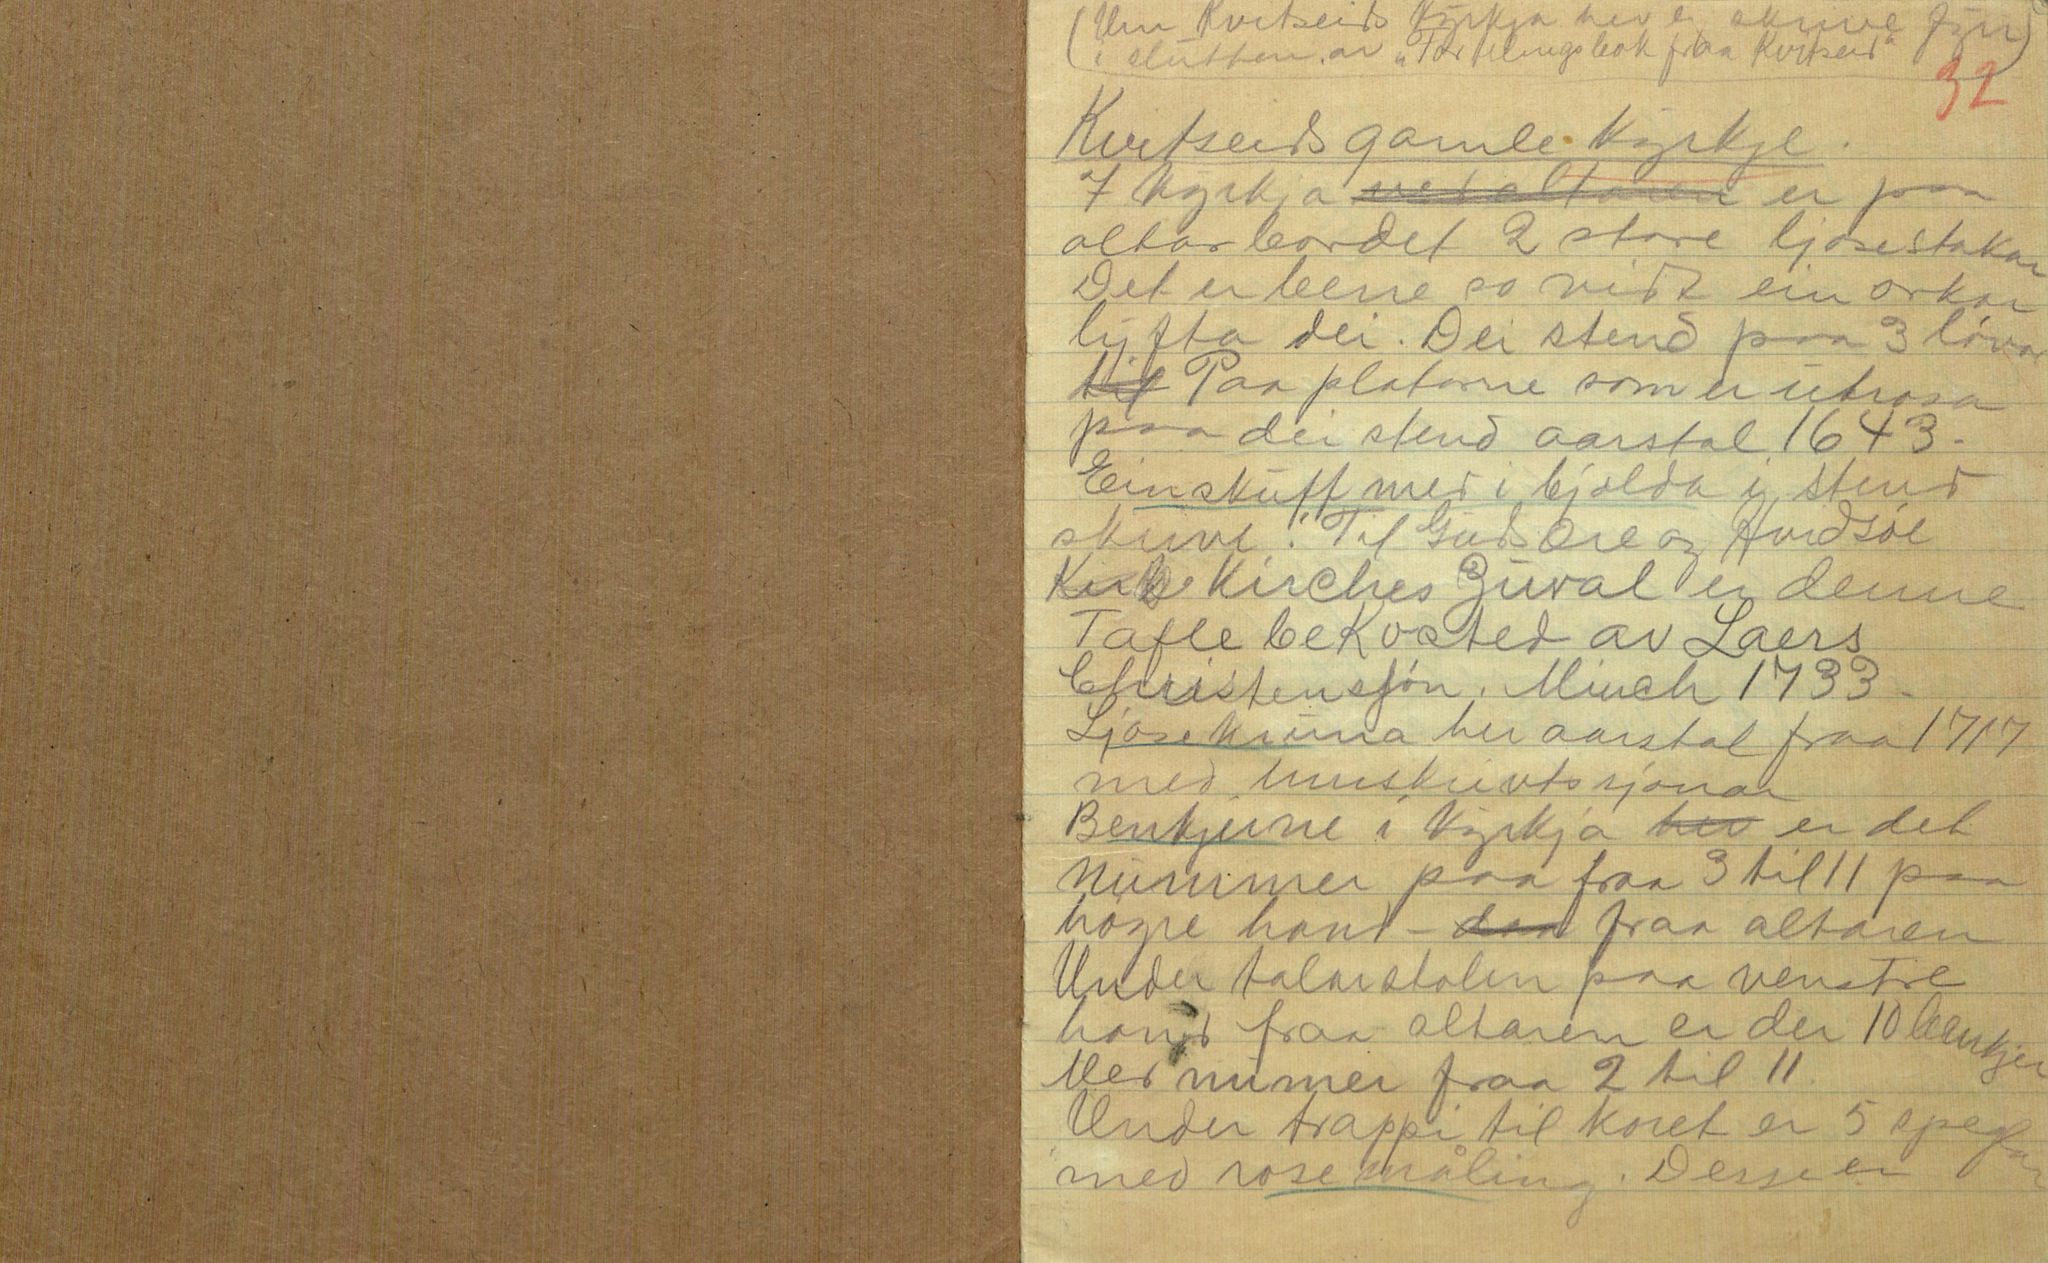 (Um Kvitseids Kyrkja hev eg skrive fyrr)
i slutten av "Forteljingsbok fraa Kvitseid"
32
Kvitseids gamle Kyrkje.
I Kyrkja ved altaren er paa
altarbordet 2 store ljosestakar
Det er berre so vidt ein orkar
lyfta dei. Dei stend paa 3 lövar
til Paa platorne som er utrosa
paa dei stend aarstal 1643.
Ein skuff med i bjölda i, stend
skrive: "Til Guds Ære og Hvidsöe
Kirke Kirches Zirval er denne
Tafle beKosted av Laers
Christensjön. Minch 1733 -
Ljosekruna hev aarstal fraa 1717
med umskrivtssjonar
Benkjerne i Kyrkja hev er det
Nummer paa fraa 3 til 11 paa
högre hand - daa fraa altaren
Under talarstolen paa venstre
hand fraa altaren er der 10 benkjer
Med numer fraa 2 til 11.
Under trappi til koret er 5 speglar
med rosemåling. Desse er